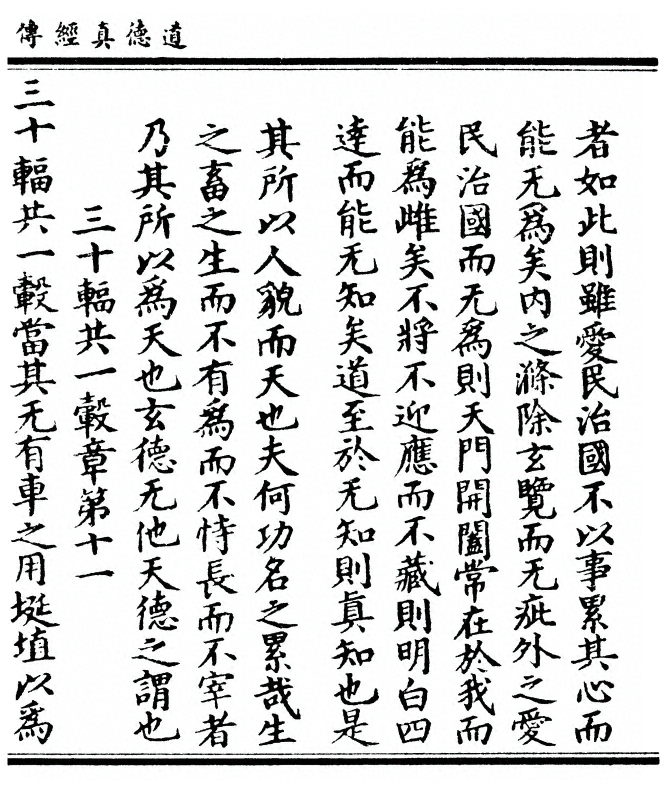 道德真經傳
者如此則雖愛民治國不以事累其心而
能无爲矣内之滌除玄覽而无疵外之愛
民治國而无爲則天門開闔常在於我而
能爲雌矣不將不迎應而不藏則明白四
達而能无知矣道至於无知則真知也是
其所以人貌而天也夫何功名之累哉生
之畜之生而不有爲而不恃長而不宰者
乃其所以爲天也玄德无他天德之謂也
三十輻共一轂章第十一
三十輻共一轂當其无有車之用埏埴以爲